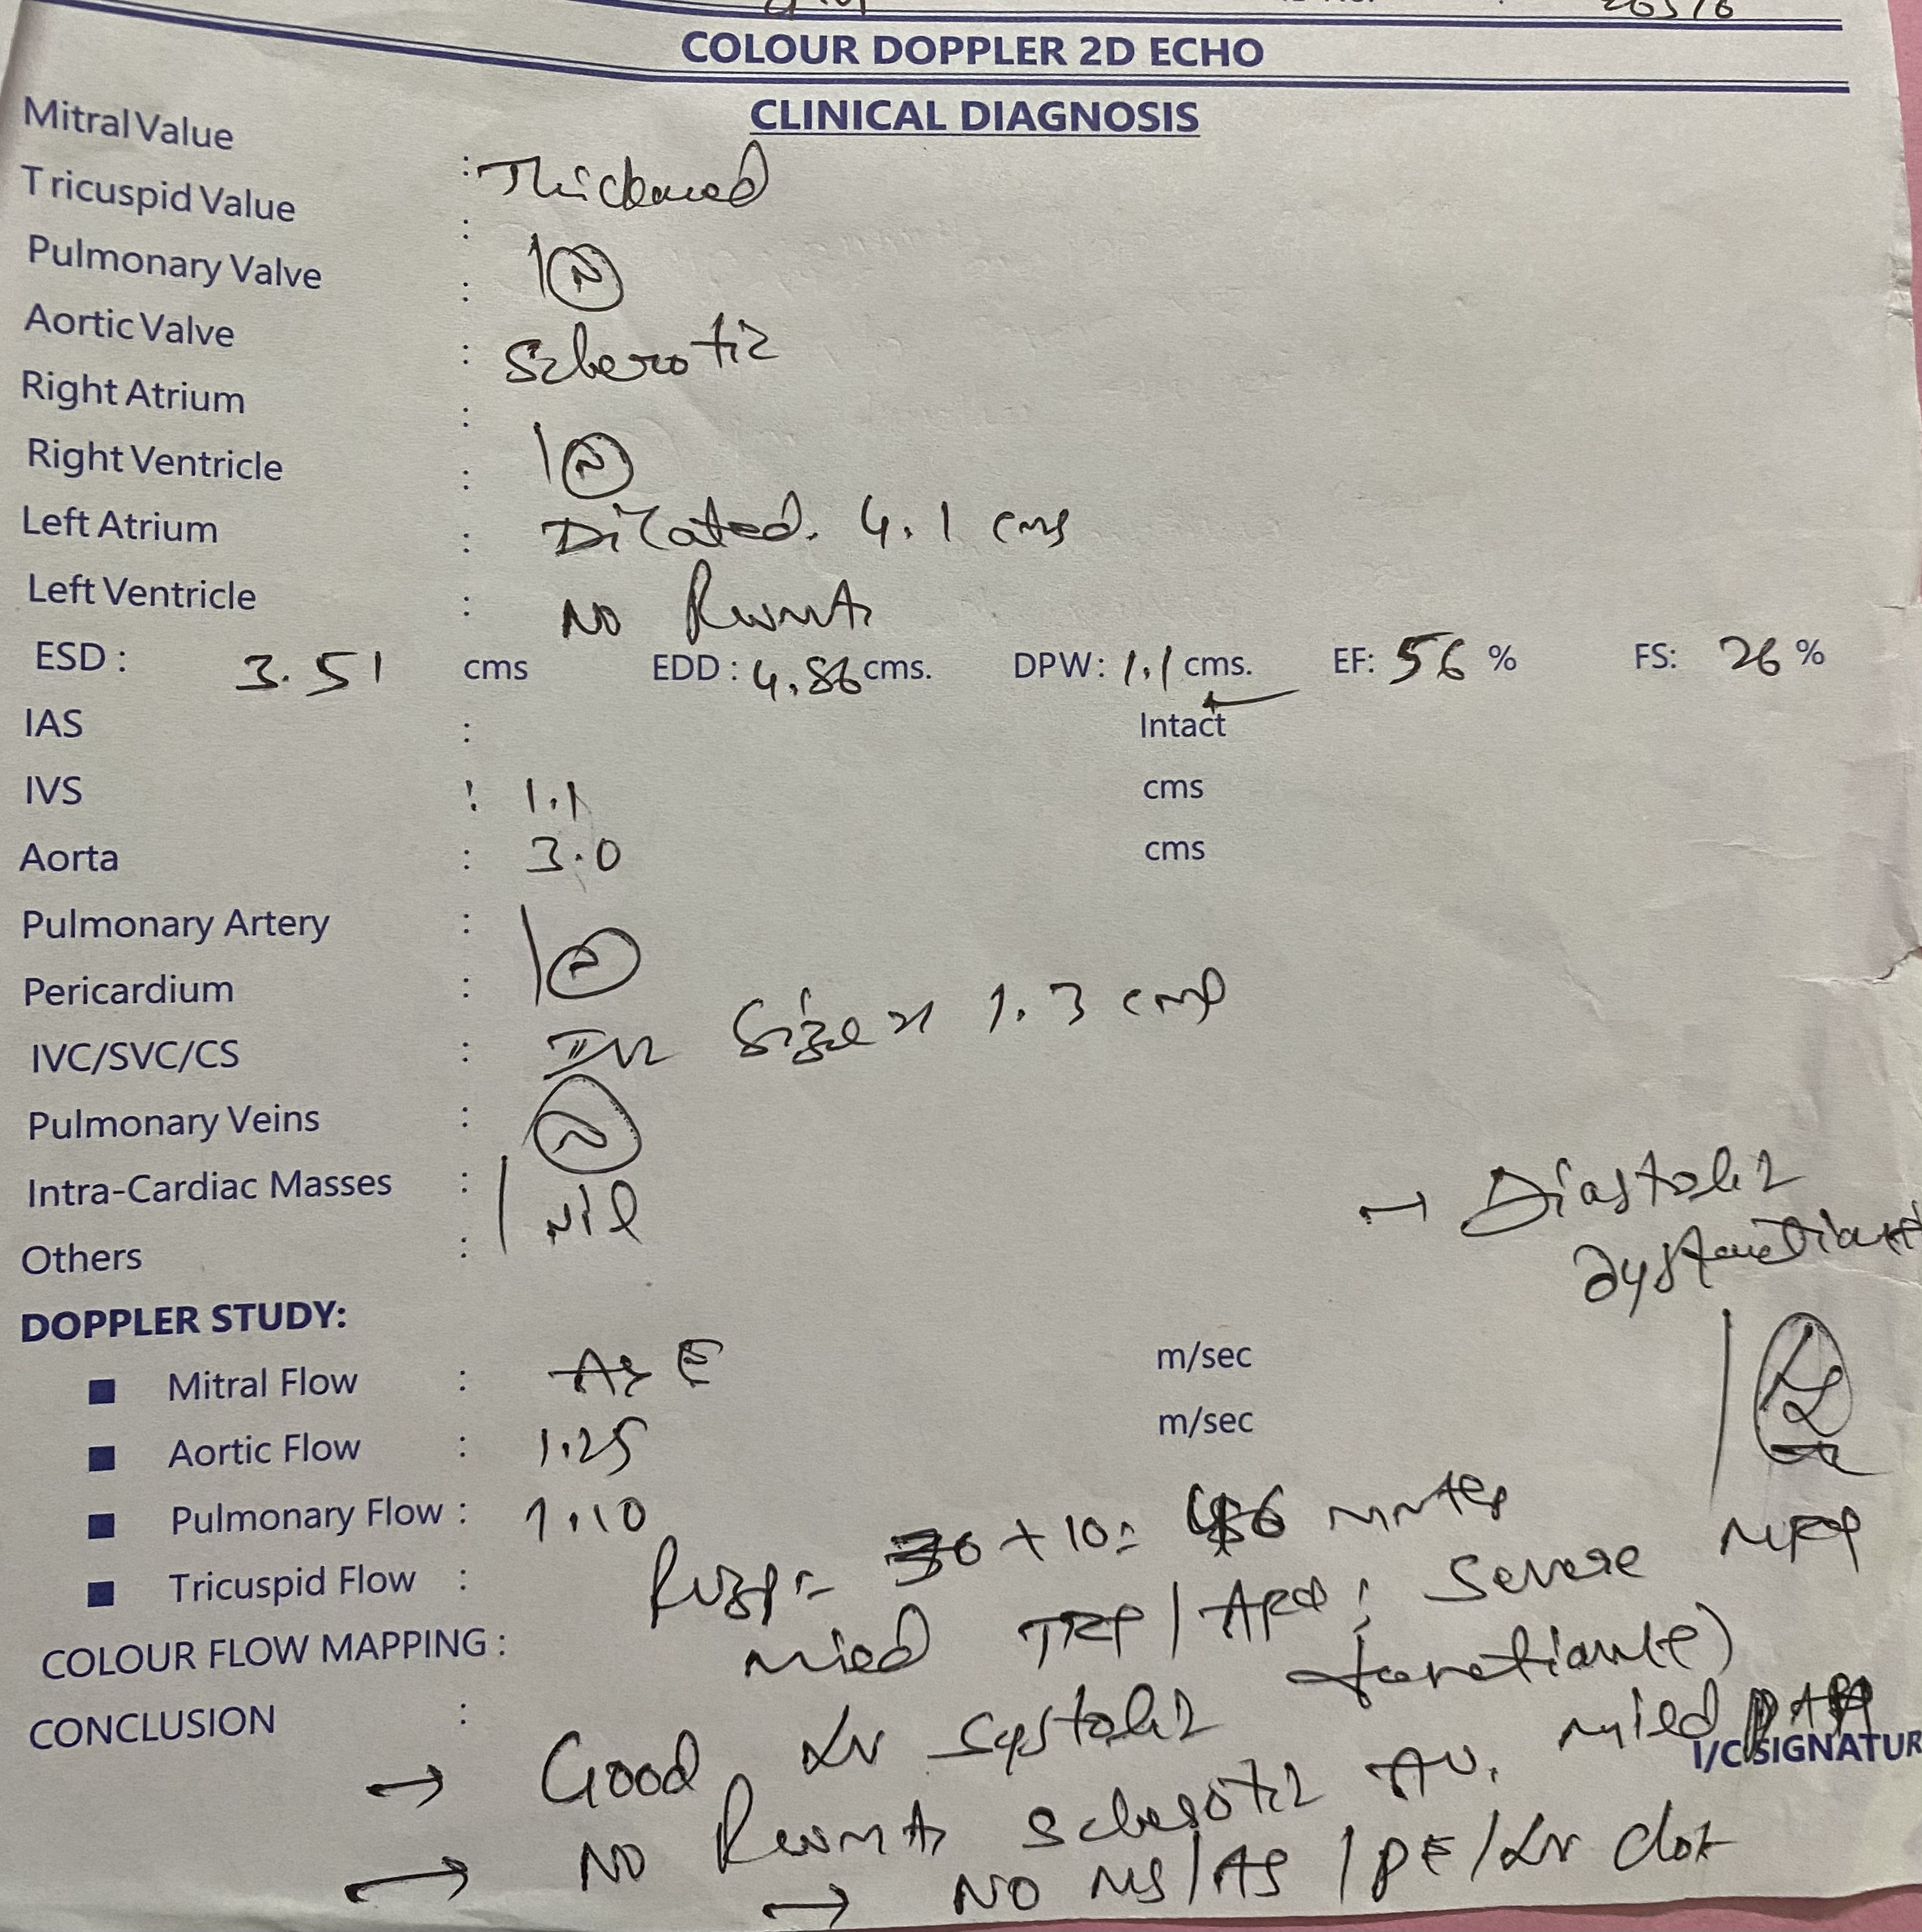 26516
COLOUR DOPPLER 2D ECHO
CLINICAL DIAGNOSIS
Mitral Value : Thickened
Tricuspid Value :
Pulmonary Valve : N
Aortic Valve : Sclerotic
Right Atrium :
Right Ventricle : N
Left Atrium : Dilated. 4.1 cms
Left Ventricle : NO RWMA
ESD : 3.51 cms EDD : 4.86 cms. DPW: 1.1 cms. EF: 56 % FS: 26 %
IAS : Intact
IVS : 1.1 cms
Aorta : 3.0 cms
Pulmonary Artery :
Pericardium : N
IVC/SVC/CS : IVC Size 1.3 cms
Pulmonary Veins : N
Intra-Cardiac Masses :
Others : Nil
→ Diastolic
dysfunction
DOPPLER STUDY:
Mitral Flow : A> E m/sec
Aortic Flow : 1.25 m/sec
Pulmonary Flow : 1.10
Tricuspid Flow : RVSP = + 10 = mmHg
COLOUR FLOW MAPPING : mild TR / AR ; Severe MR
CONCLUSION :
→ Good LV Systolic function
→ NO RWMA Sclerotic AV, mild PAH
I/C SIGNATUR
→ NO MS/AS / PE / LV clot